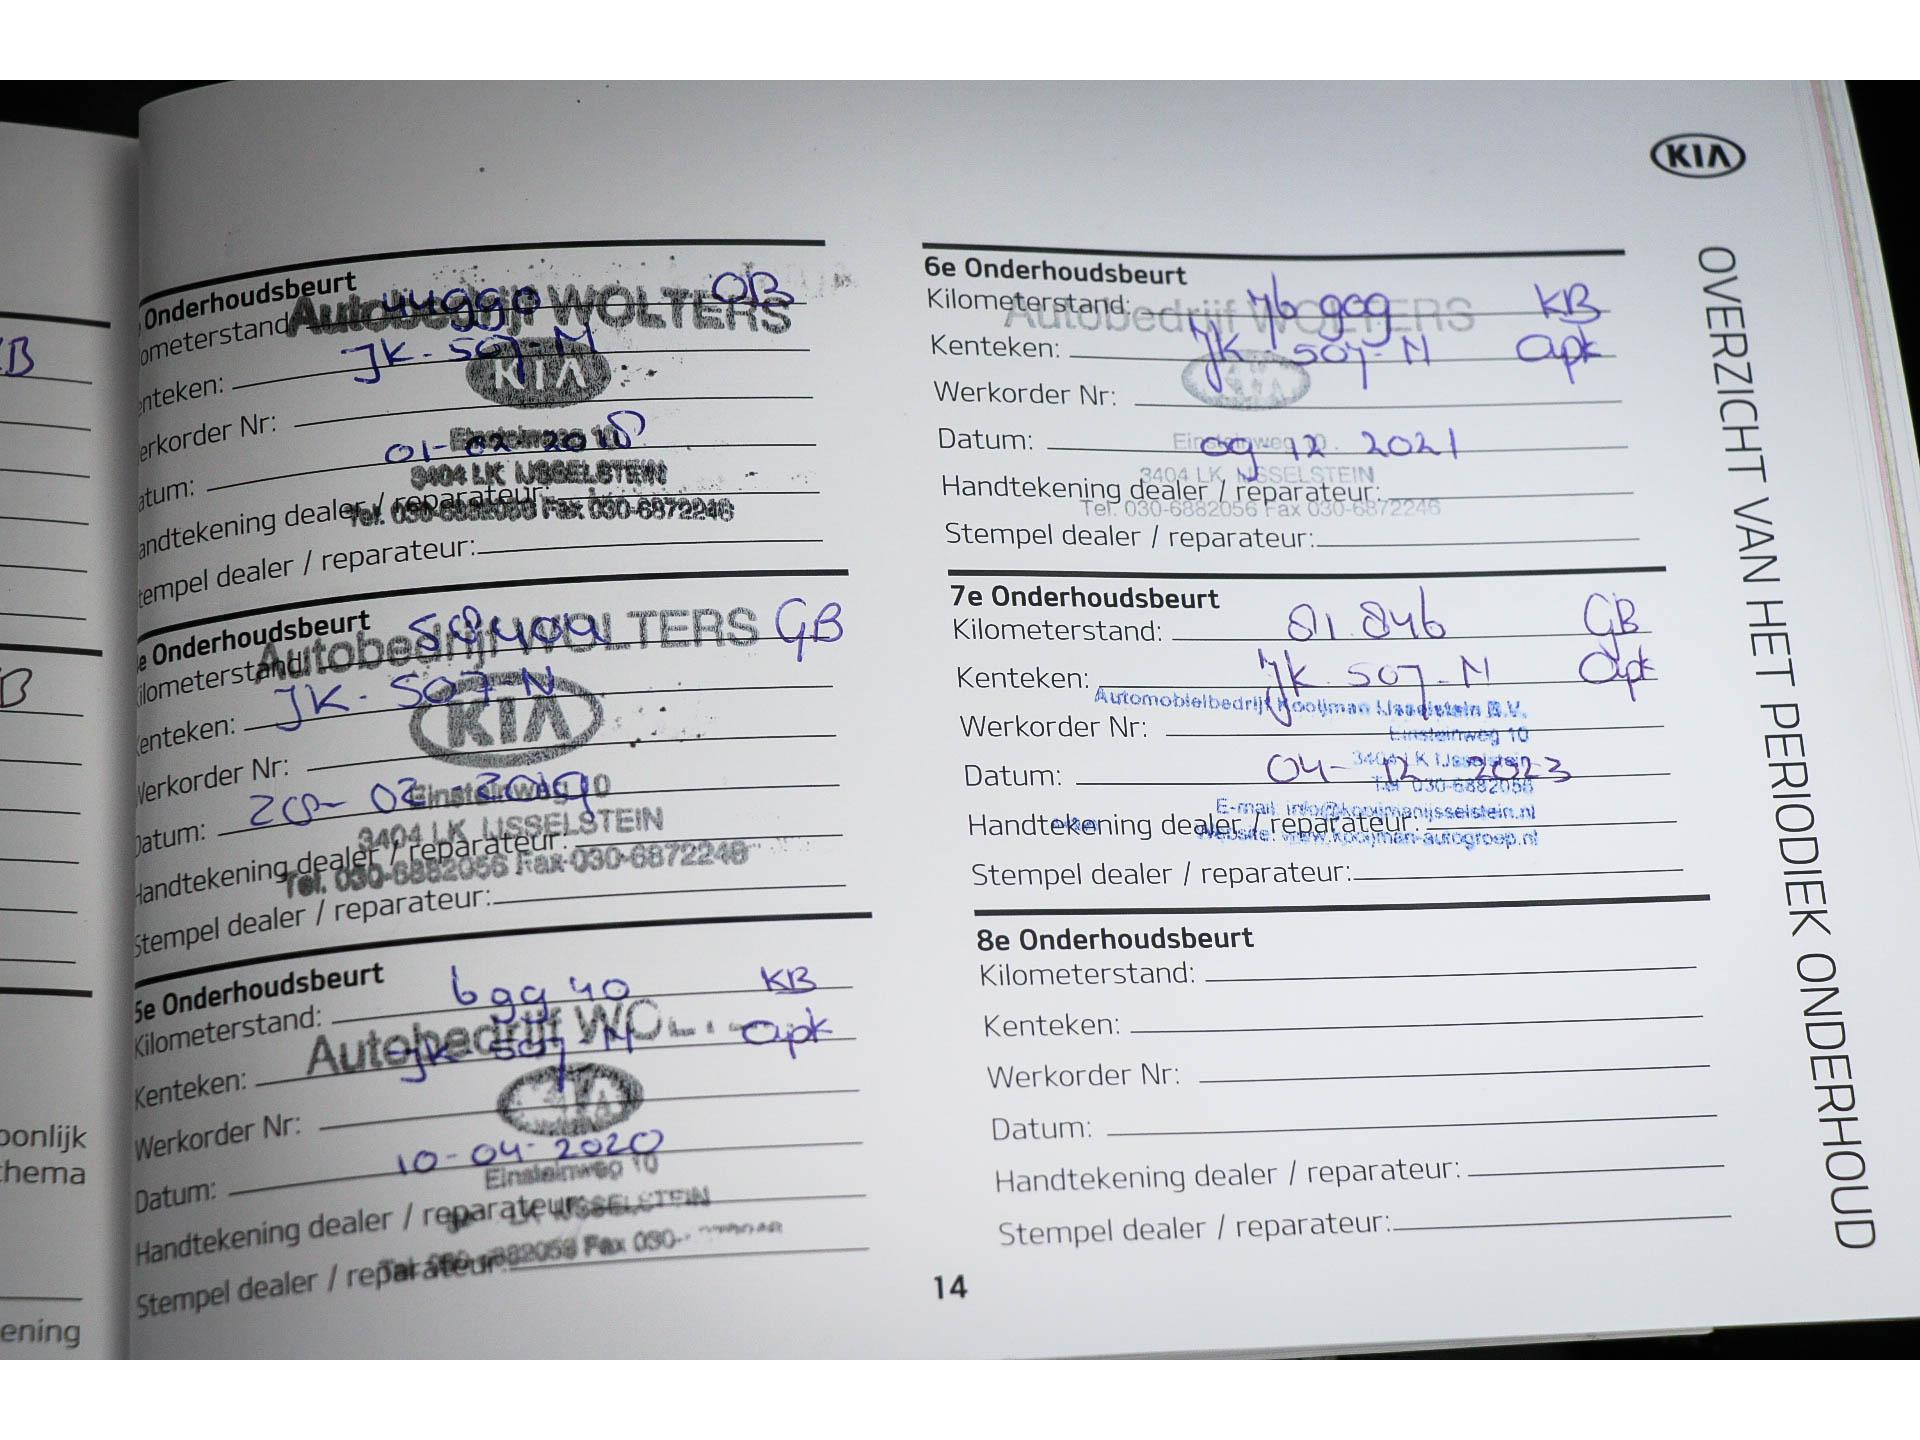 B
B
oonlijk
hema
ening
Onderhoudsbeurt
ometerstand: 44990 OB
Autobedrijf WOLTERS
enteken: JK-507-N
KIA
erkorder Nr:
atum: 01-02-2018
Einsteinweg 10
3404 LK IJSSELSTEIN
andtekening dealer / reparateur:
Tel. 030-6882056 Fax 030-6872246
tempel dealer / reparateur:
e Onderhoudsbeurt
Kilometerstand: GB
Autobedrijf WOLTERS
Kenteken: JK-507-N
KIA
Werkorder Nr:
Datum: 20-02-2019
Einsteinweg 10
3404 LK IJSSELSTEIN
Handtekening dealer / reparateur:
Tel. 030-6882056 Fax 030-6872246
Stempel dealer / reparateur:
5e Onderhoudsbeurt
Kilometerstand: 69940 KB
Autobedrijf WOL
Kenteken: JK-507 N apk
Werkorder Nr:
Datum: 10-04-2020
Einsteinweg 10
LK IJSSELSTEIN
Handtekening dealer / reparateur:
Tel. 030-6882056 Fax 030-
Stempel dealer / reparateur:
KIA
6e Onderhoudsbeurt
Kilometerstand: 76909 KB
Autobedrijf WOLTERS
Kenteken: JK 507-N apk
KIA
Werkorder Nr:
Datum: 09 12 2021
Einsteinweg 10
3404 LK IJSSELSTEIN
Handtekening dealer / reparateur:
Tel. 030-6882056 Fax 030-6872246
Stempel dealer / reparateur:
7e Onderhoudsbeurt
Kilometerstand: 81.846 GB
Kenteken: JK 507-N apk
Automobielbedrijf Kooijman IJsselstein B.V.
Werkorder Nr:
Einsteinweg 10
3404 LK IJsselstein
Datum: 04-12-2023
Tel. 030-6882056
E-mail: info@kooijmanijsselstein.nl
Handtekening dealer / reparateur:
Website: www.kooijman-autogroep.nl
Stempel dealer / reparateur:
8e Onderhoudsbeurt
Kilometerstand:
Kenteken:
Werkorder Nr:
Datum:
Handtekening dealer / reparateur:
Stempel dealer / reparateur:
OVERZICHT VAN HET PERIODIEK ONDERHOUD
14